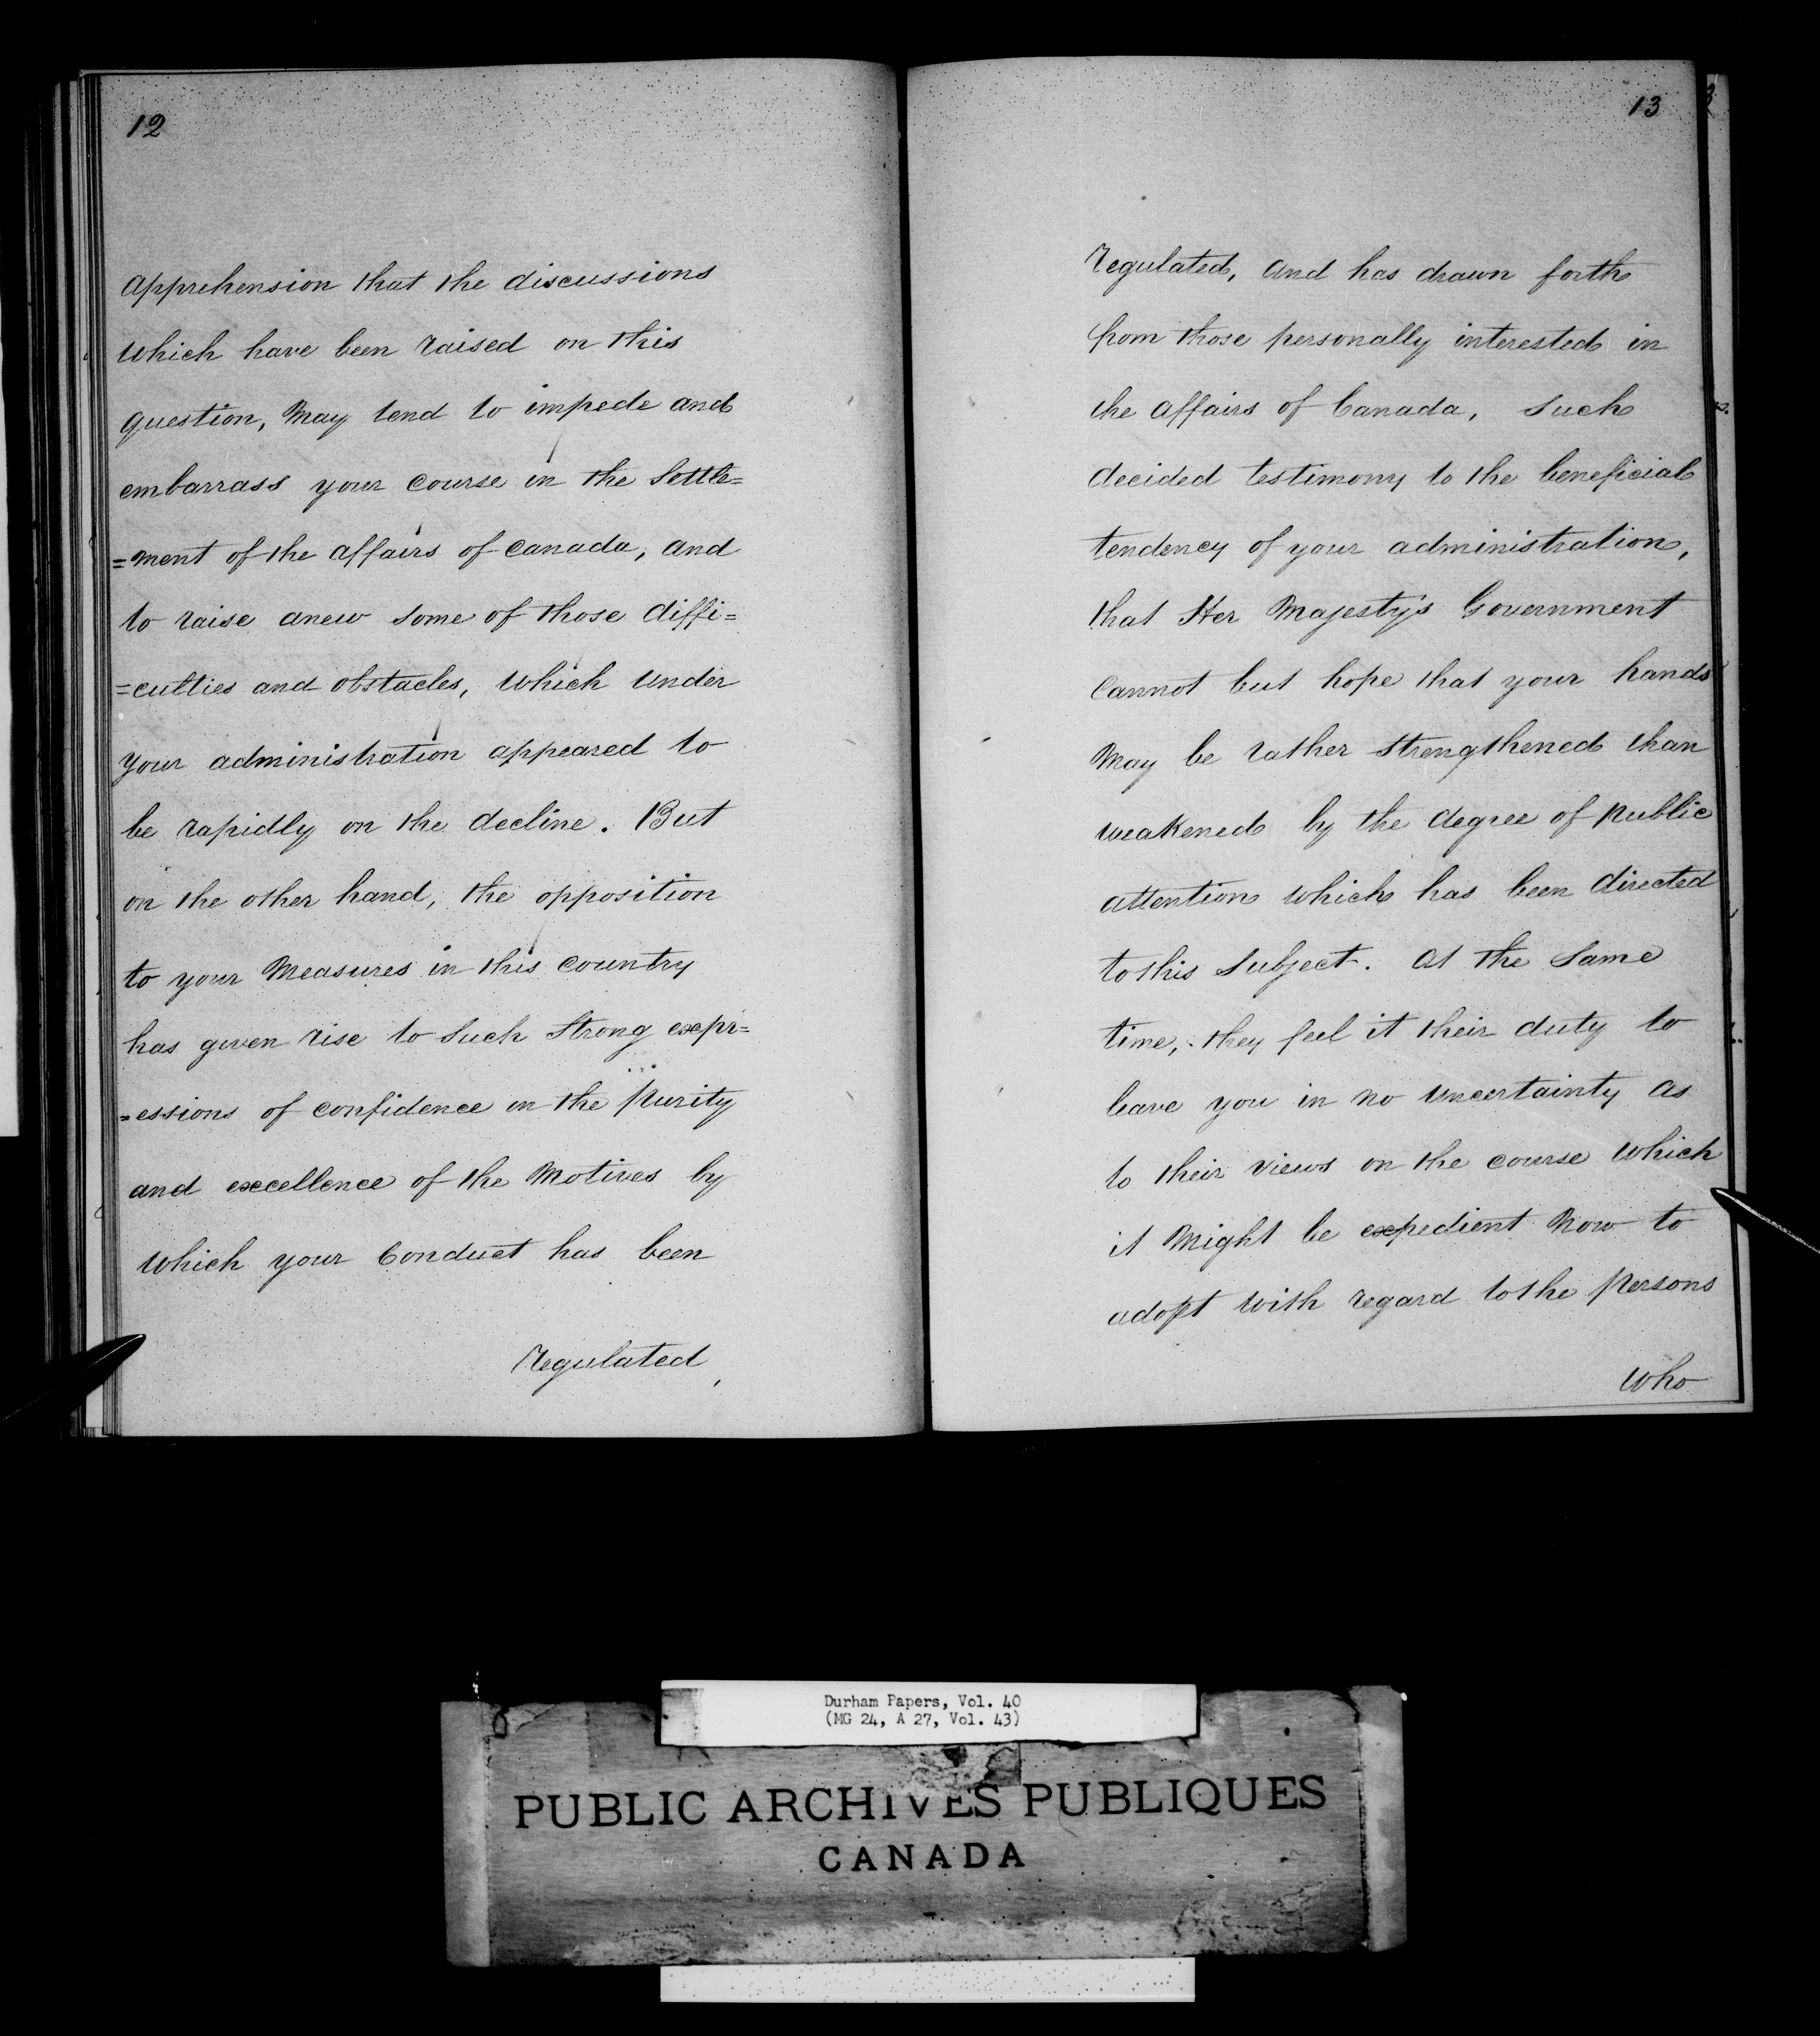 12
apprehension that the discussions
which have been raised on this
question, may tend to impede and
embarrass your course in the settle=
=ment of the affairs of Canada, and
to raise anew some of those diffi=
=culties and obstacles, which under
your administration appeared to
be rapidly on the decline. But
on the other hand, the opposition
to your Measures in this country
has given rise to such strong expr=
=essions of confidence in the purity
and excellence of the Motives by
which your Conduct has been
regulated,
13
regulated, and has drawn forth
from those personally interested in
the affairs of Canada, such
decided testimony to the beneficial
tendency of your administration,
that Her Majesty's Government
cannot but hope that your hands
may be rather strengthened than
weakened by the degree of public
attention which has been directed
to this subject. At the same
time, they feel it their duty to
leave you in no uncertainty as
to their views on the course which
it might be expedient now to
adopt with regard to the persons
who
Durham Papers, Vol. 40
(MG 24, A 27, Vol. 43)
PUBLIC ARCHIVES PUBLIQUES
CANADA